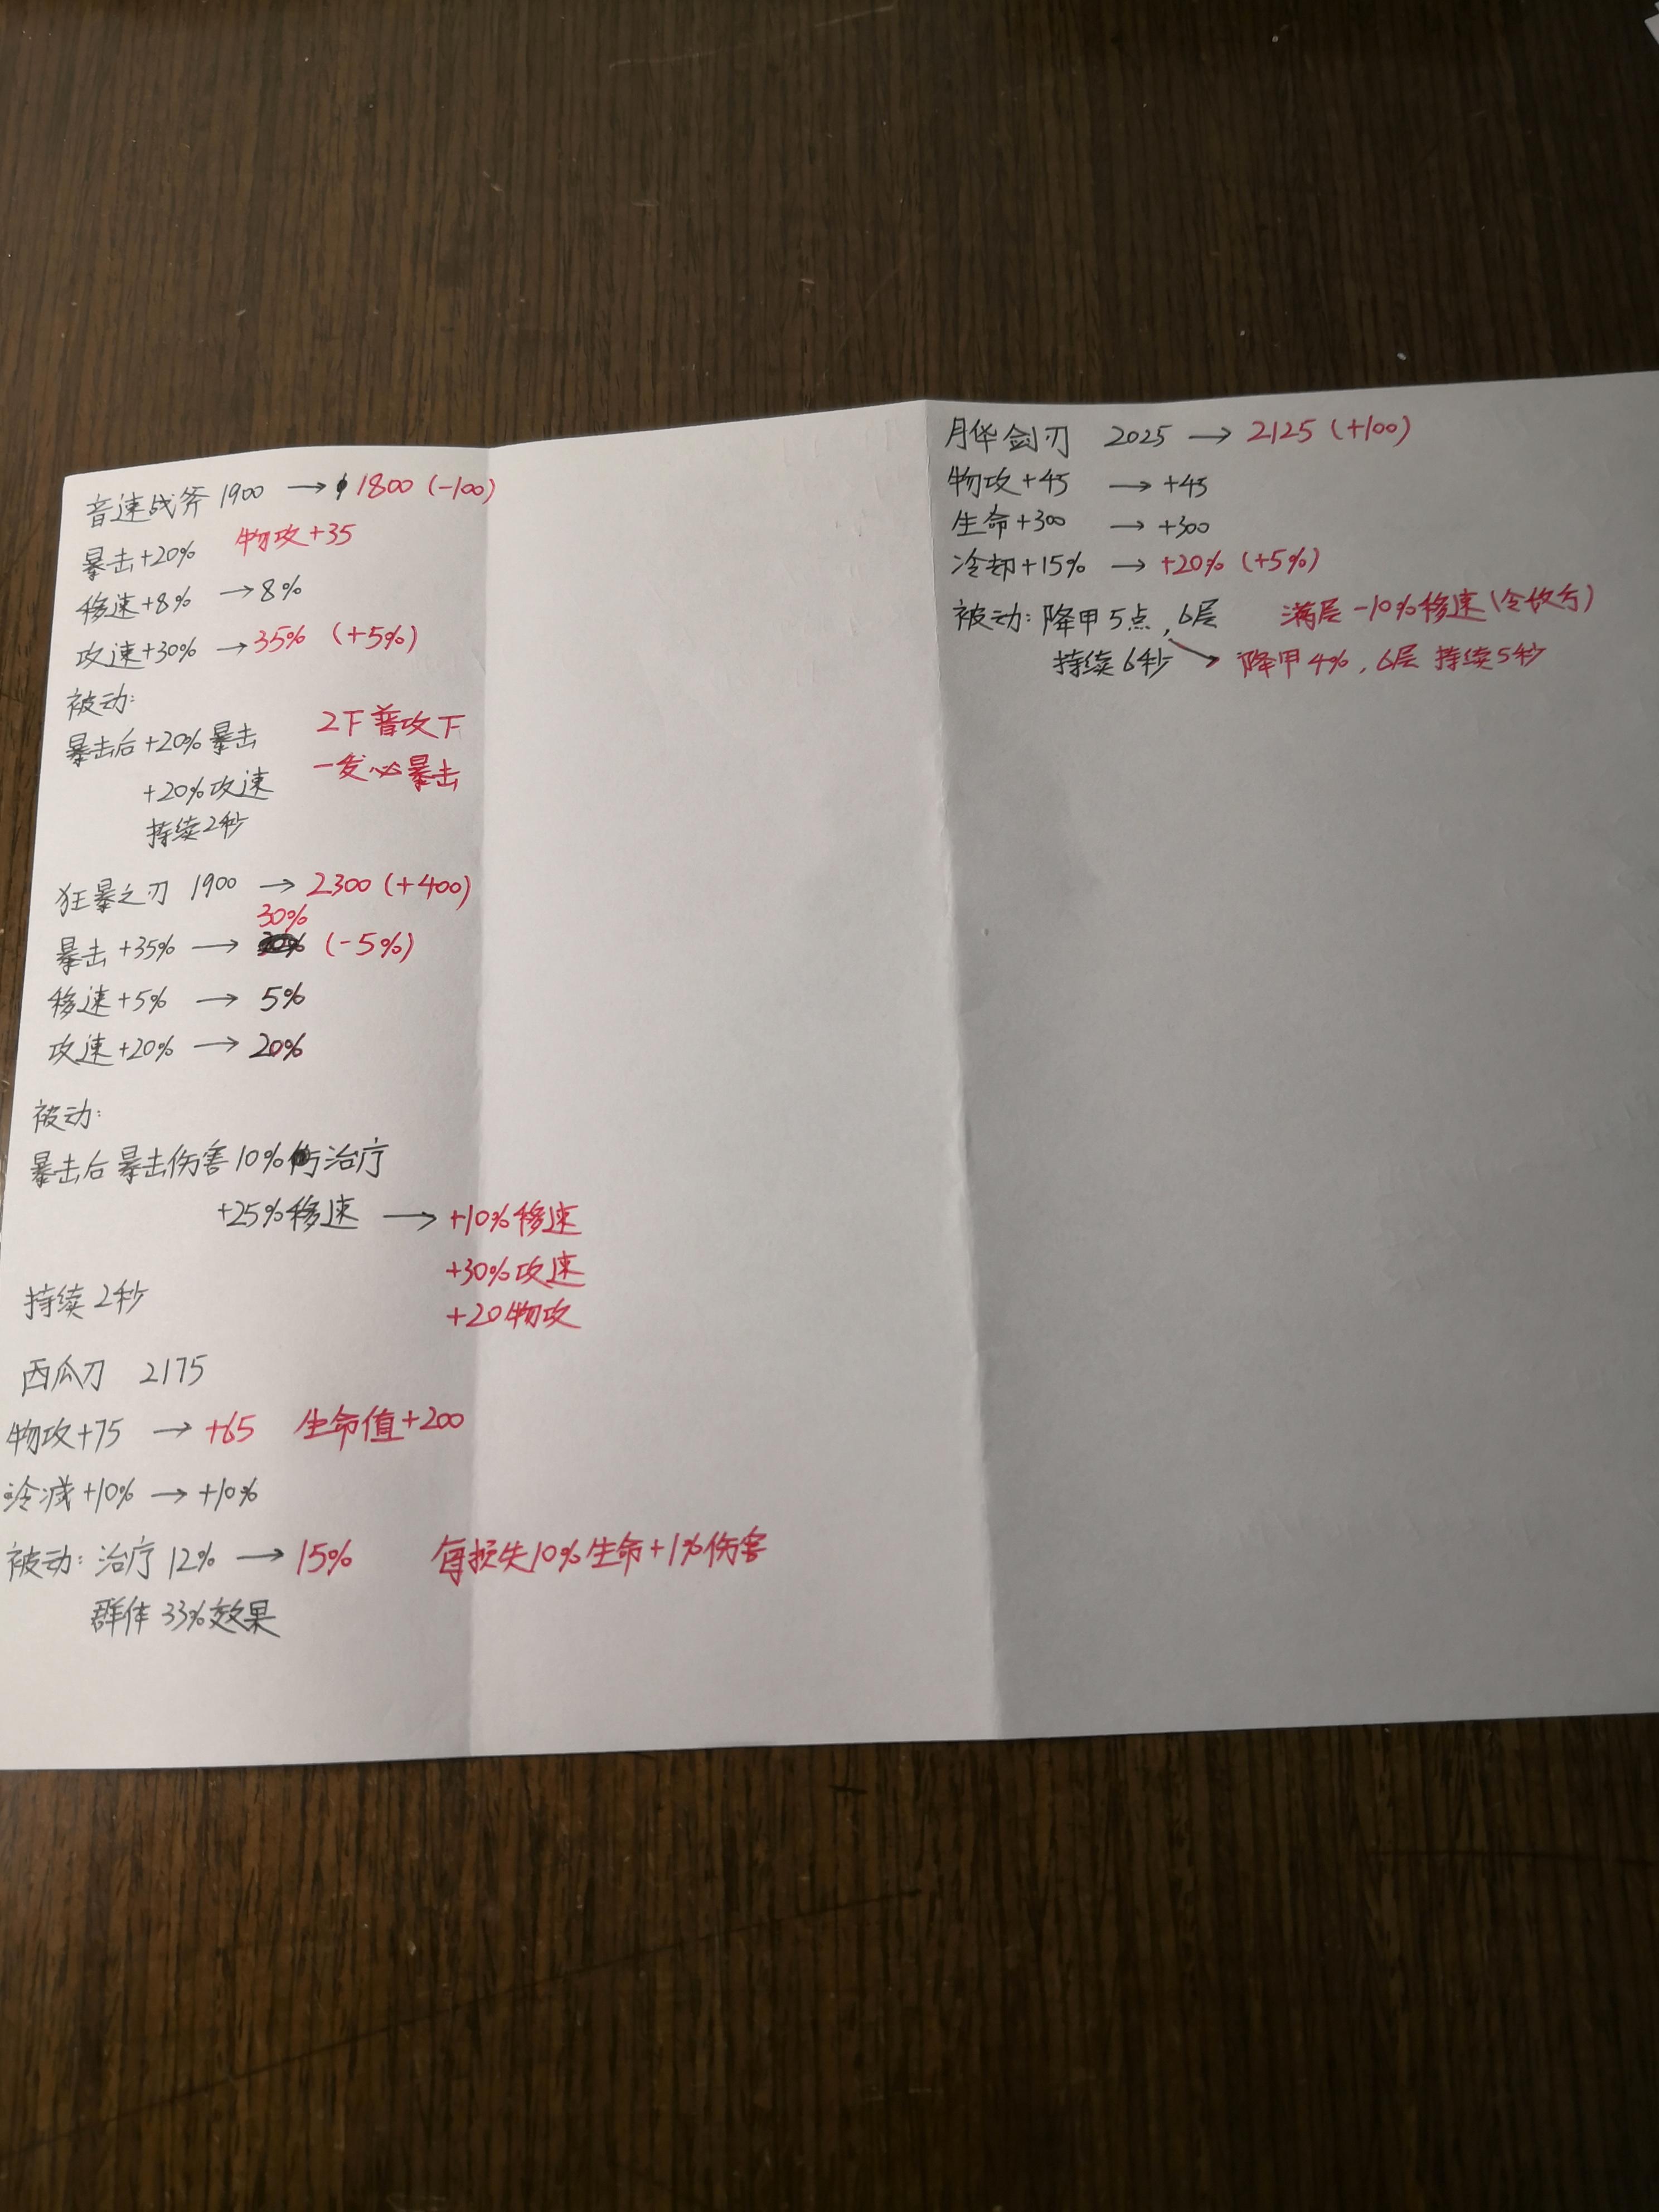 音速战斧 1900 → 1800 (-100)
暴击+20% 物攻+35
移速+8% → 8%
攻速+30% → 35% (+5%)
被动:
暴击后+20%暴击 2下普攻下
+20%攻速 一发必暴击
持续2秒
狂暴之刃 1900 → 2300 (+400)
30%
暴击+35% → (-5%)
移速+5% → 5%
攻速+20% → 20%
被动:
暴击后暴击伤害10%的治疗
+25%移速 → +10%移速
+30%攻速
持续2秒
+20物攻
西瓜刀 2175
物攻+75 → +65 生命值+200
冷减+10% → +10%
被动: 治疗12% → 15% 每损失10%生命+1%伤害
群体33%效果
月华剑刃 2025 → 2125 (+100)
物攻+45 → +45
生命+300 → +300
冷却+15% → +20% (+5%)
被动: 降甲5点, 6层 满层-10%移速(令牧行)
持续6秒 → 降甲4%, 6层 持续5秒